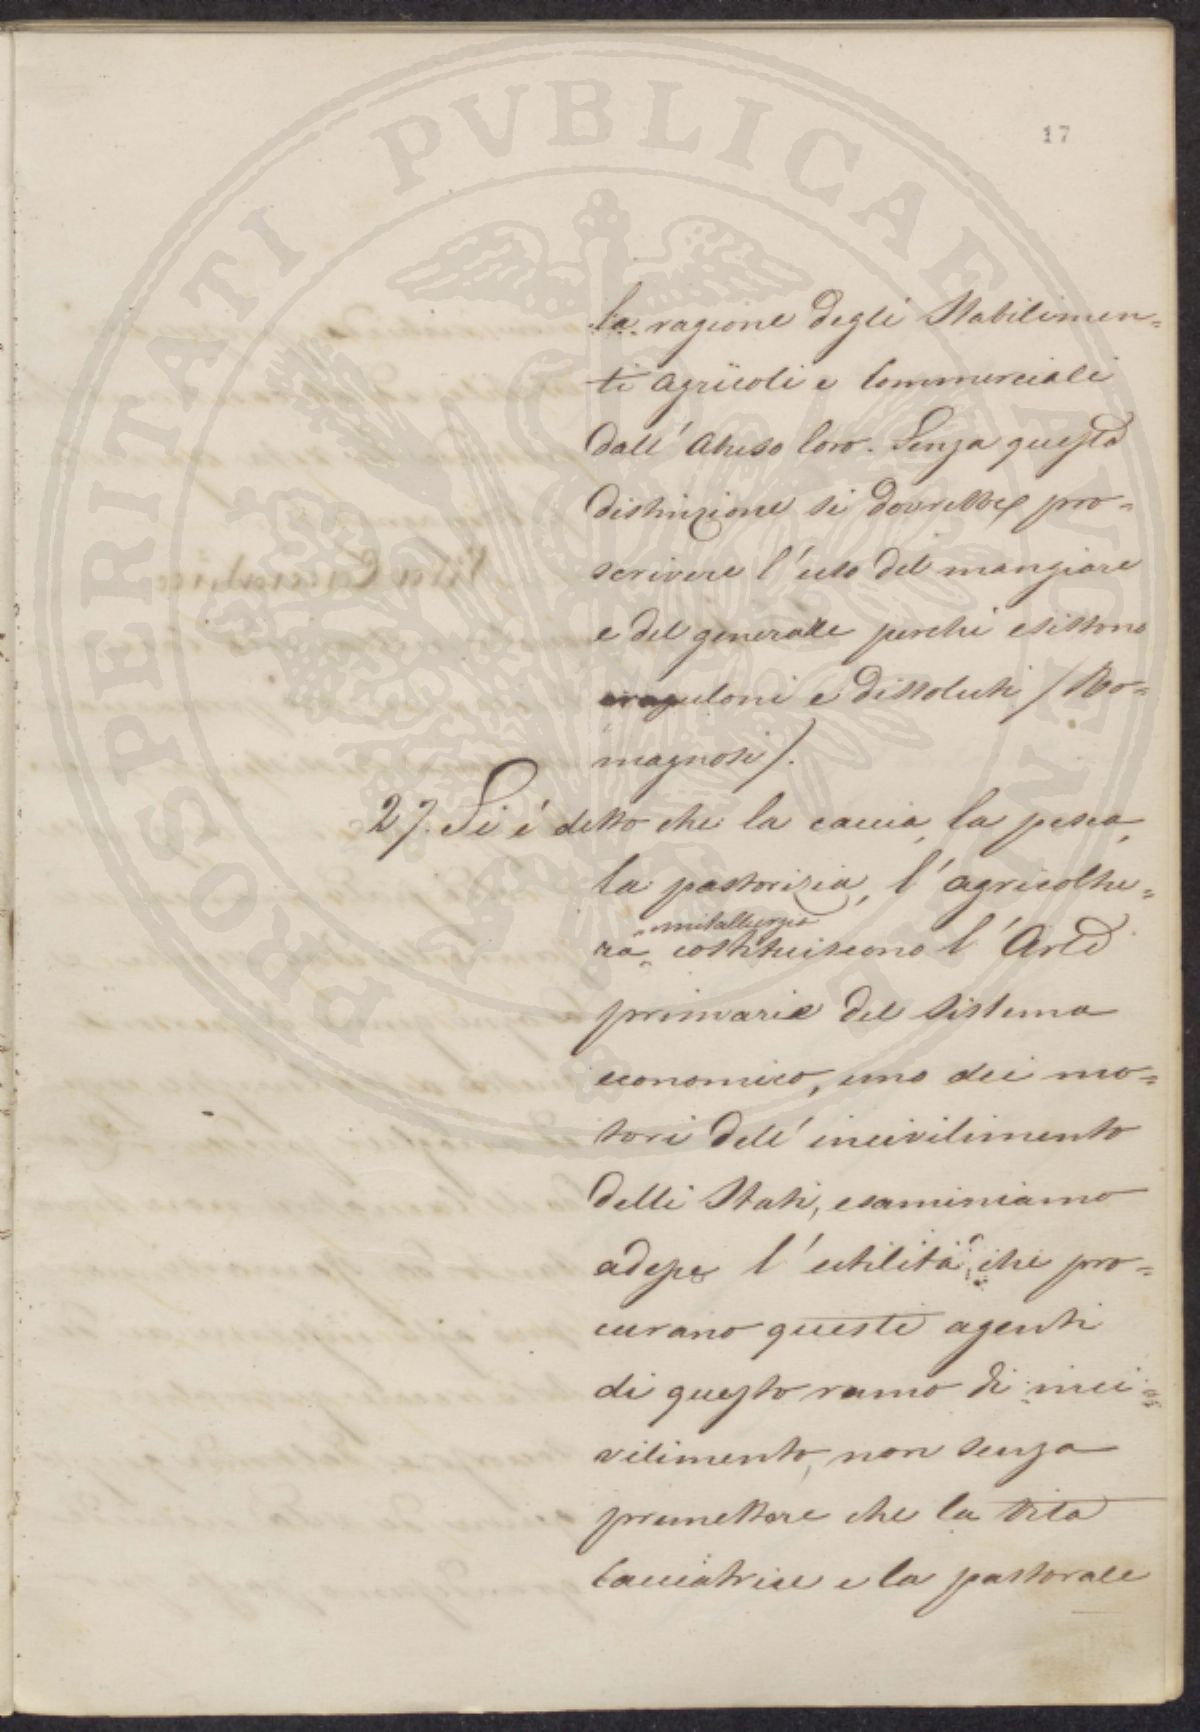 PROSPERITATI PVBLICAE AVGENDAE
17
la ragione degli Stabilimen=
ti agricoli e Commerciali
dall' abuso loro. Senza questa
distinzione si dovrebbe pro=
scrivere l'uso del mangiare
e del generare perchè esistono
crapuloni e dissoluti / Ro=
magnosi /.
27. Si è detto che la caccia, la pesca,
la pastorizia, l'agricoltu=
metallurgia
ra costituiscono l'Arte
primaria del sistema
economico, uno dei mo=
tori dell' incivilimento
delli Stati, esaminiamo
adesso l'utilità che pro=
curano questi agenti
di questo ramo di inci=
vilimento, non senza
premettere che la vita
Cacciatrice e la pastorale